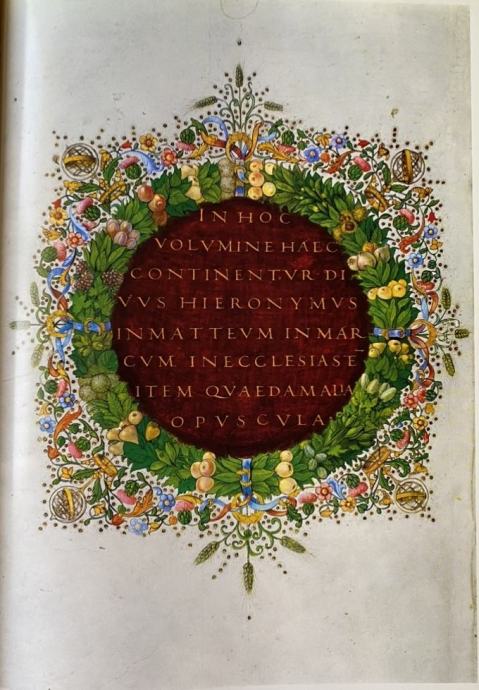 IN HOC
VOLVMINE HAEC
CONTINENTVR DI
VVS HIERONYMVS
INMATTEVM INMAR
CVM INECCLESIASE
ITEM QVAEDAMALIA
OPVSCVLA